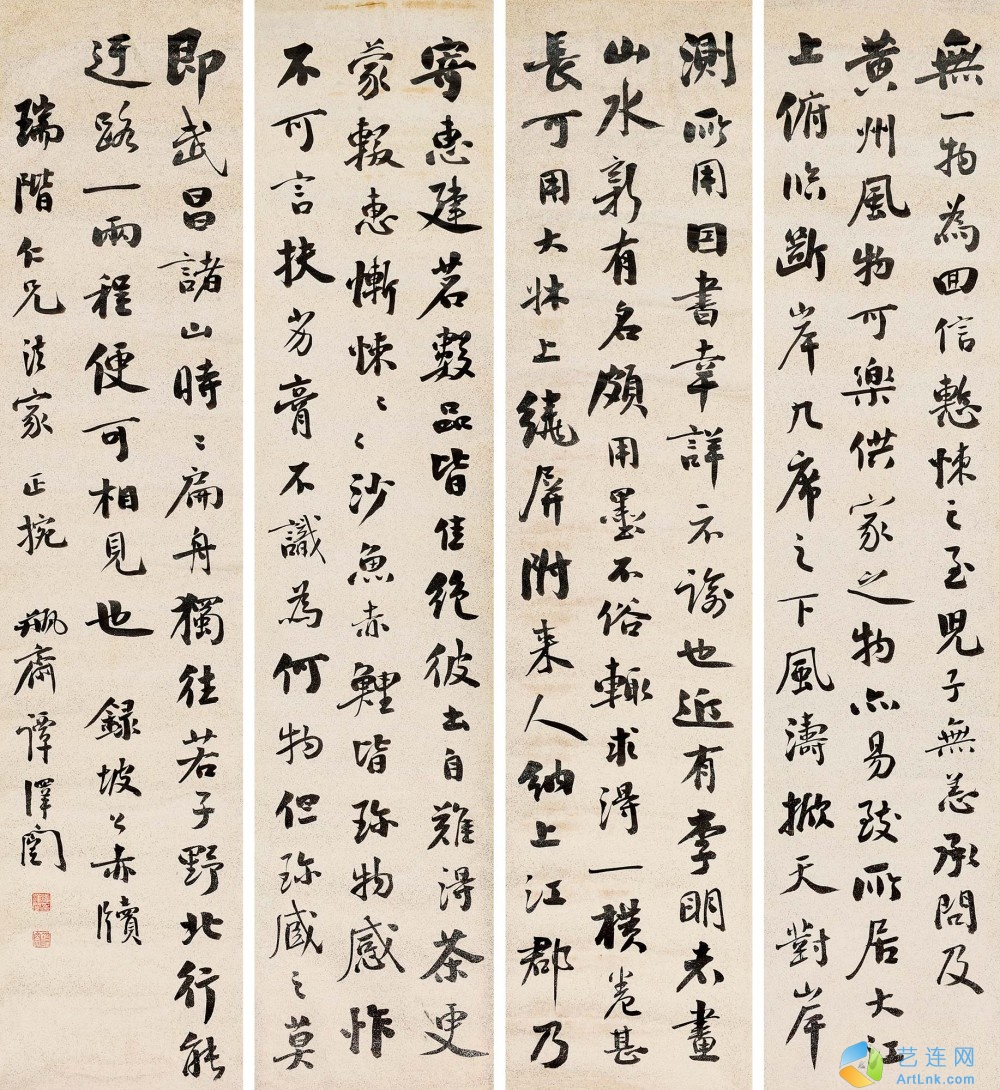 無一物為回信慙悚之至兒子無恙承問及
黄州風物可樂供家之物亦易致所居大江
上俯臨斷岸几席之下風濤掀天對岸
測所用因書幸詳示諭也近有李明者畫
山水新有名頗用墨不俗輒求得一橫卷甚
長可用大牀上繞屏附来人納上江郡乃
寄惠建茗數品皆佳絕彼土自難得茶更
蒙輟惠慚悚〻沙魚赤鯉皆珍物感怍
不可言扶劣膏不識為何物但珍藏之莫
即武昌諸山時〻扁舟獨往若子野北行能
迂路一兩程便可相見也 録坡公赤牘
瑞階仁兄法家正捥 瓶齋譚澤闓
艺连网
ArtLnk.com